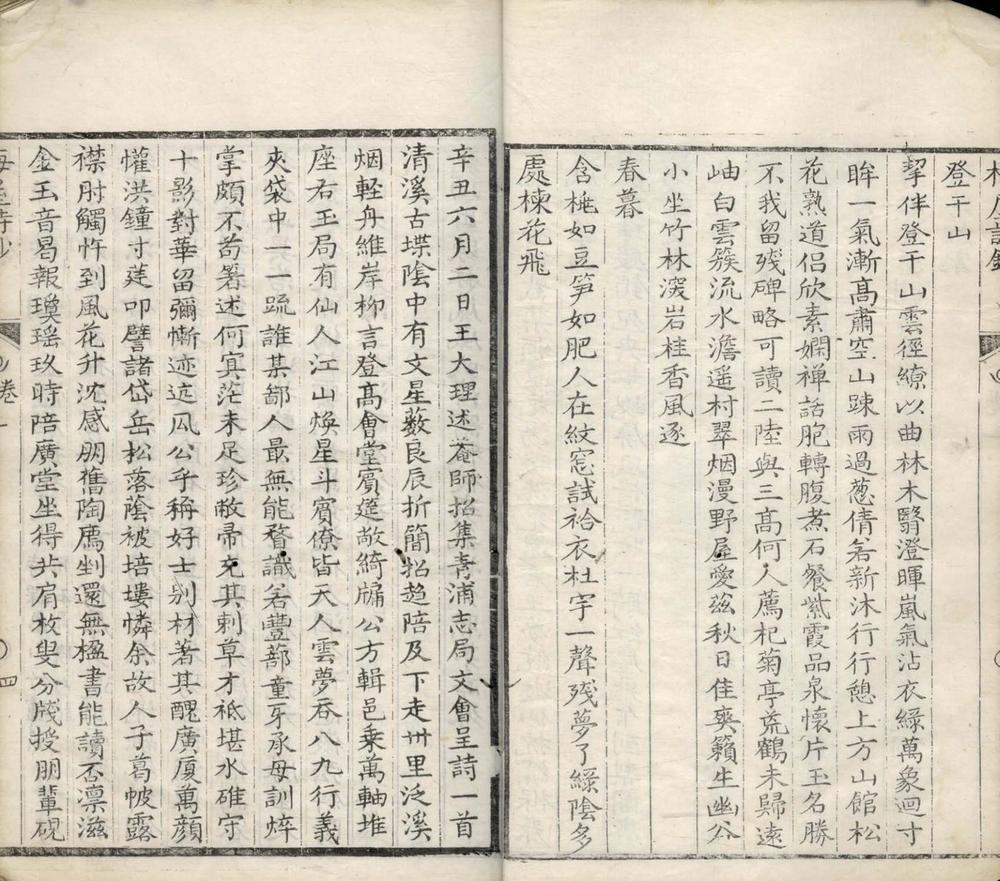 登干山
挈伴登干山雲徑繚以曲林木翳澄暉嵐氣沾衣綠萬象迴寸
眸一氣漸髙肅空山踈雨過蔥倩若新沐行行憩上方山館松
花熟道侣欣素嫻禅話胞轉腹煮石餐紫霞品泉懷片玉名勝
不我留残碑略可讀二陸與三髙何人薦杞菊亭荒鶴未歸遠
岫白雲簇流水澹遥村翠烟漫野屋愛茲秋日佳爽籟生幽谷
小坐竹林深岩桂香風逐
春暮
含桃如豆笋如肥人在紋窓試袷衣杜宇一聲残夢了綠陰多
處楝花飛
辛丑六月二日王大理述菴師招集青浦志局文會呈詩一首
清溪古堞陰中有文星藪良辰折簡招趋陪及下走卅里泛溪
烟軽舟維岸柳言登髙會堂賓筵敞綺牖公方輯邑乗萬軸堆
座右玉局有仙人江山煥星斗賓僚皆天人雲夢吞八九行義
夾袋中一一疏誰某鄙人最無能瞀識若豐蔀童牙承母訓焠
掌頗不苟著述何㝠茫未足珍敝帚充其剌草才祗堪水碓守
十影對華留彌慚迹迒瓜公乎稱好士别材著其醜廣厦萬顔
懽洪鐘寸莛叩譬諸岱岳松落蔭被培塿憐余故人子葛帔露
襟肘觸忤到風花升沈感朋舊陶廌剉還無楹書能讀否凛滋
金玉音曷報瓊瑶玖時陪廣堂坐得共肩枚叟分牋授朋輩硯
卷一
四